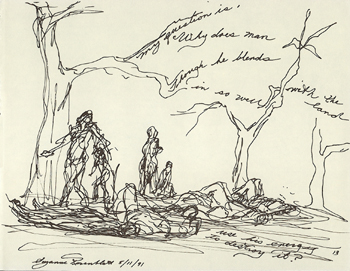 my question is:
Why does man
though he blends
in so well with the
land
use his energy
to destroy it?
Suzanne Rosenblatt 5/11/91
13